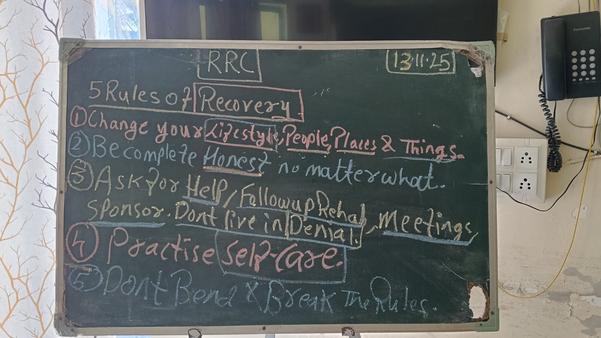 RRC
13·11·25
5 Rules of Recovery.
① Change your Lifestyle, People, Places & Things.
② Be complete Honest no matter what.
③ Ask for Help, Follow up Rehab, Meetings,
Sponsor. Dont live in Denial.
④ Practise Self-Care.
⑤ Dont Bend & Break The Rules.